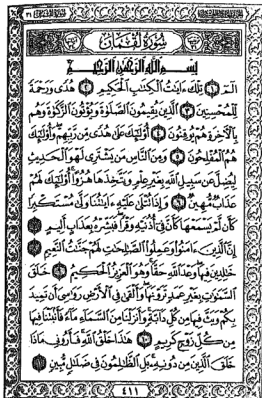 سُورَةُ لُقْمَانَ
بِسْمِ ٱللَّهِ ٱلرَّحْمَٰنِ ٱلرَّحِيمِ
الٓمٓ ١ تِلْكَ ءَايَٰتُ ٱلْكِتَٰبِ ٱلْحَكِيمِ ٢ هُدًى وَرَحْمَةً
لِّلْمُحْسِنِينَ ٣ ٱلَّذِينَ يُقِيمُونَ ٱلصَّلَوٰةَ وَيُؤْتُونَ ٱلزَّكَوٰةَ وَهُم
بِٱلْأَخِرَةِ هُمْ يُوقِنُونَ ٤ أُو۟لَٰٓئِكَ عَلَىٰ هُدًى مِّن رَّبِّهِمْ وَأُو۟لَٰٓئِكَ
هُمُ ٱلْمُفْلِحُونَ ٥ وَمِنَ ٱلنَّاسِ مَن يَشْتَرِى لَهْوَ ٱلْحَدِيثِ
لِيُضِلَّ عَن سَبِيلِ ٱللَّهِ بِغَيْرِ عِلْمٍ وَيَتَّخِذَهَا هُزُوًا أُو۟لَٰٓئِكَ لَهُمْ
عَذَابٌ مُّهِينٌ ٦ وَإِذَا تُتْلَىٰ عَلَيْهِ ءَايَٰتُنَا وَلَّىٰ مُسْتَكْبِرًا
كَأَن لَّمْ يَسْمَعْهَا كَأَنَّ فِىٓ أُذُنَيْهِ وَقْرًا فَبَشِّرْهُ بِعَذَابٍ أَلِيمٍ ٧
إِنَّ ٱلَّذِينَ ءَامَنُوا۟ وَعَمِلُوا۟ ٱلصَّٰلِحَٰتِ لَهُمْ جَنَّٰتُ ٱلنَّعِيمِ ٨
خَٰلِدِينَ فِيهَا وَعْدَ ٱللَّهِ حَقًّا وَهُوَ ٱلْعَزِيزُ ٱلْحَكِيمُ ٩ خَلَقَ
ٱلسَّمَٰوَٰتِ بِغَيْرِ عَمَدٍ تَرَوْنَهَا وَأَلْقَىٰ فِى ٱلْأَرْضِ رَوَٰسِىَ أَن تَمِيدَ
بِكُمْ وَبَثَّ فِيهَا مِن كُلِّ دَآبَّةٍ وَأَنزَلْنَا مِنَ ٱلسَّمَآءِ مَآءً فَأَنۢبَتْنَا فِيهَا
مِن كُلِّ زَوْجٍ كَرِيمٍ ١٠ هَٰذَا خَلْقُ ٱللَّهِ فَأَرُونِى مَاذَا
خَلَقَ ٱلَّذِينَ مِن دُونِهِۦ بَلِ ٱلظَّٰلِمُونَ فِى ضَلَٰلٍ مُّبِينٍ ١١
٤١١